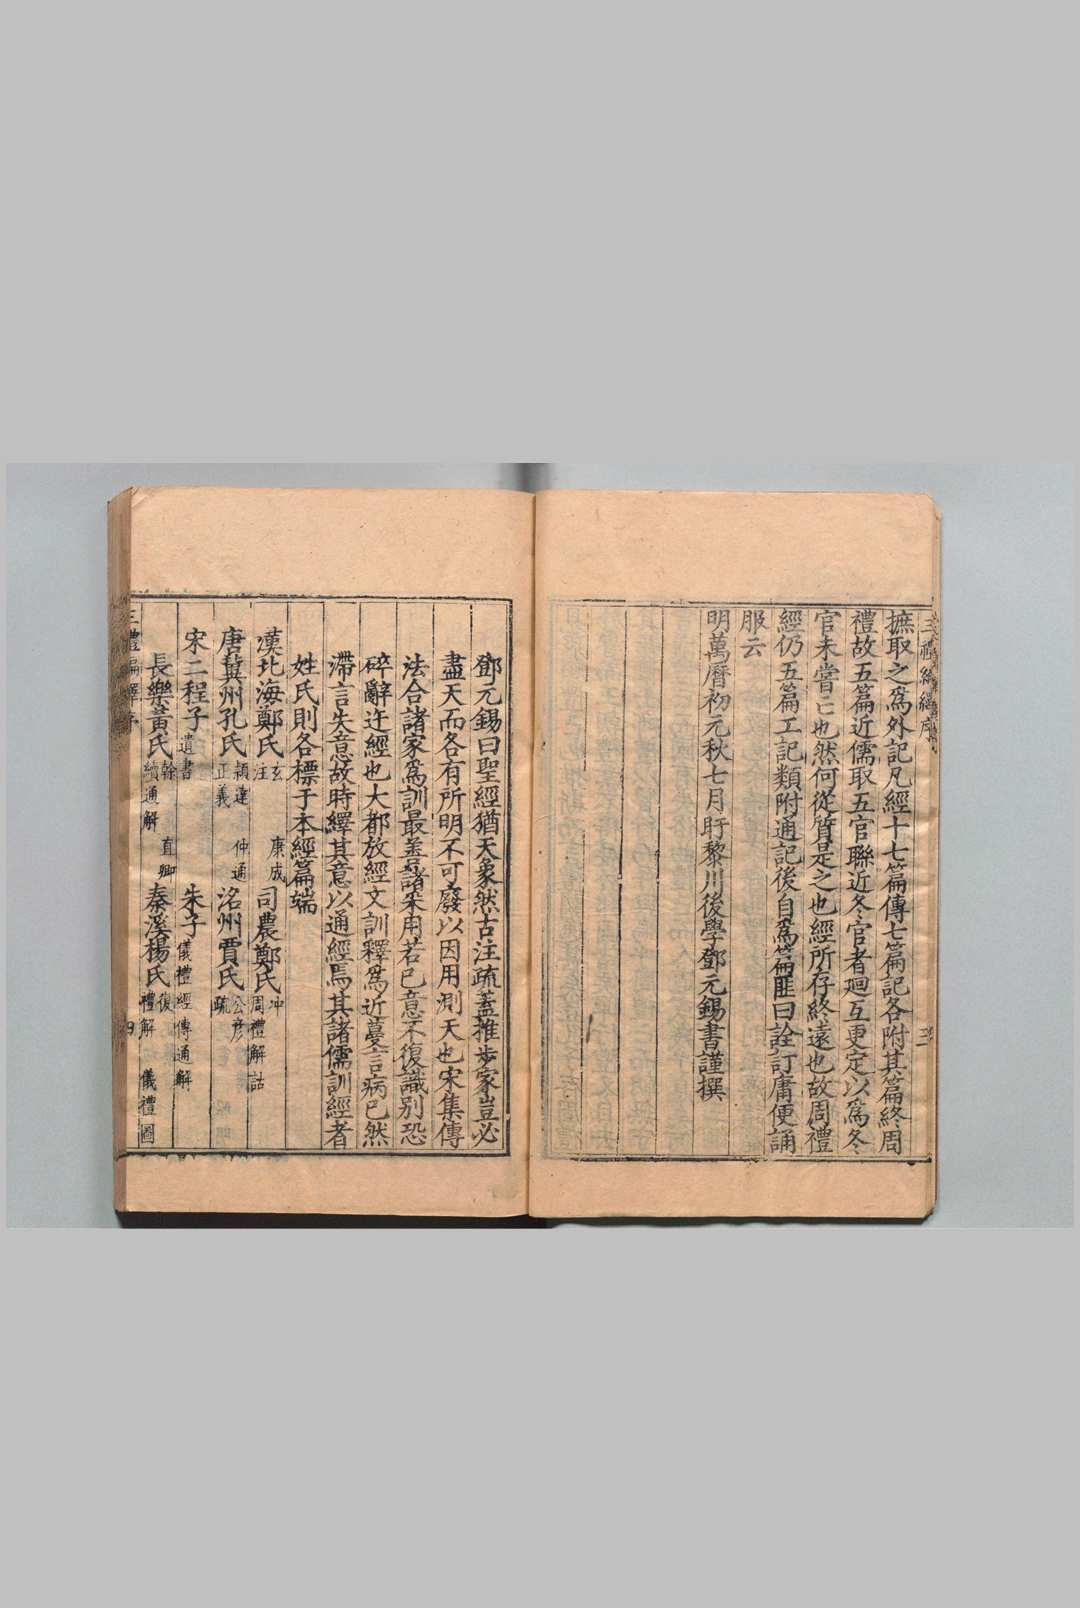 摭取之為外記凡經十七篇傳七篇記各附其篇終周
禮故五篇近儒取五官聯近冬官者廻互更定以為冬
官未嘗亡也然何從質是之也經所存終遠也故周禮
經仍五篇工記類附通記後自為篇匪曰詮訂庸便誦
服云
明萬曆初元秋七月盱黎川後學鄧元錫書謹撰
鄧元錫曰聖經猶天象然古注疏蓋推步家豈必
盡天而各有所明不可廢以因用測天也宋集傳
法合諸家為訓最善諸采用若已意不復識別恐
碎辭迕經也大都放經文訓釋為近蔓言病已然
滯言失意故時繹其意以通經焉其諸儒訓經者
姓氏則各標于本經篇端
漢北海鄭氏玄 康成 注 司農鄭氏冲 周禮解詁
唐冀州孔氏穎達 仲通 正義 洺州賈氏公彥 疏
宋二程子遺書 朱子儀禮經傳通解
長樂黃氏榦 直卿 續通解 秦溪楊氏復 禮解 儀禮圖
三禮編繹序